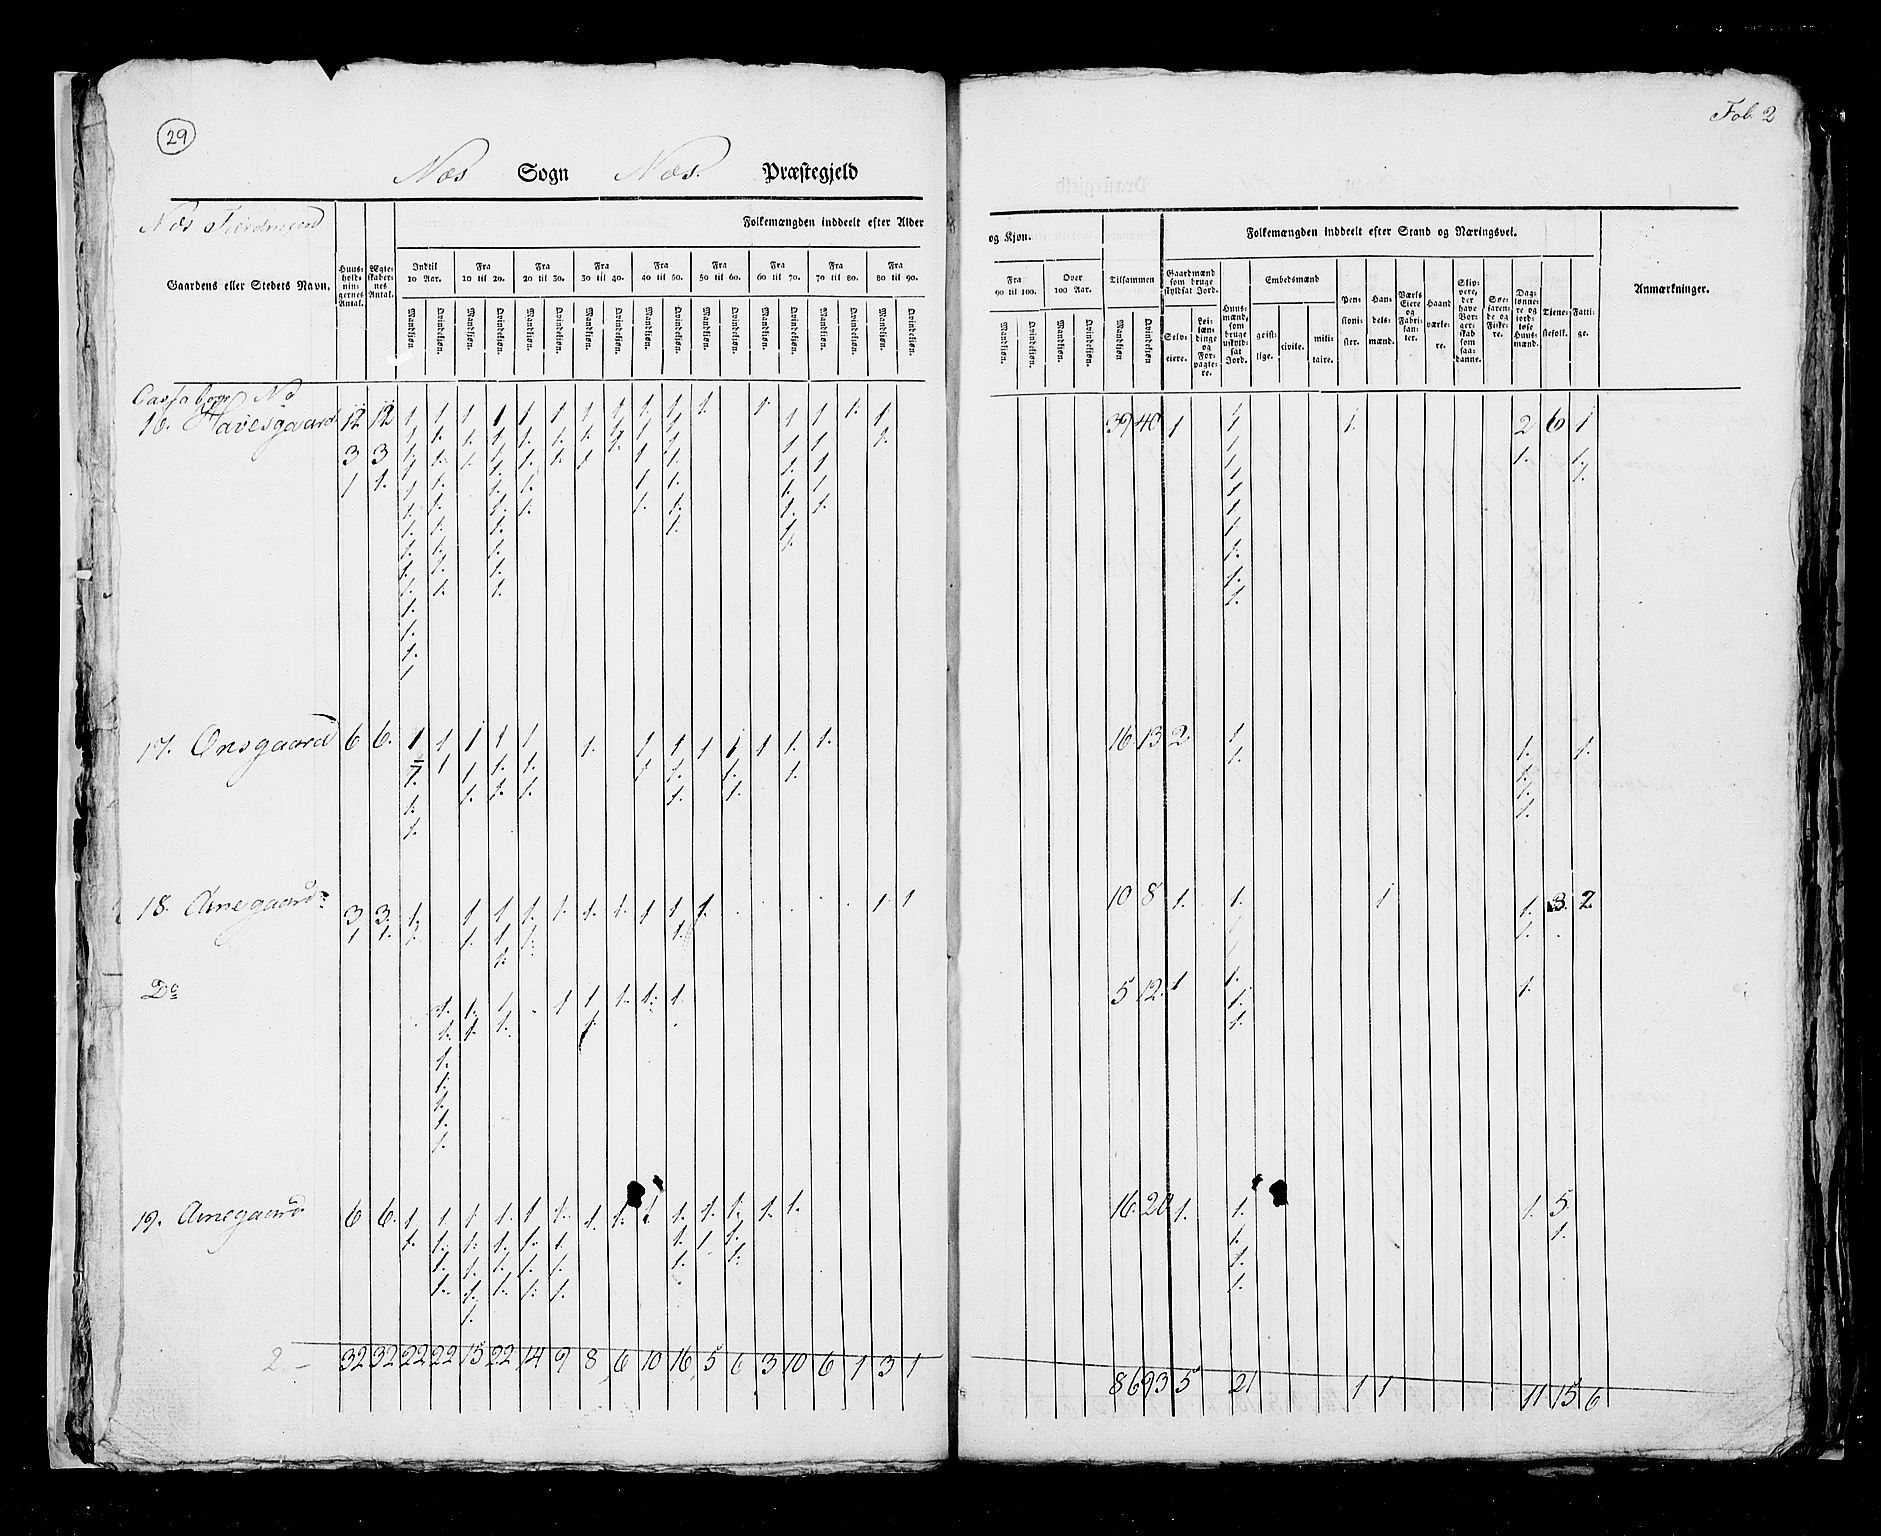 29
Fol. 2
Næs Sogn Næs. Præstegjeld
Næs Fierdineerd
Folkemængden inddeelt efter Alder
og Kjøn.
Folkemængden inddeelt efter Stand og Næringsvei.
Gaardens eller Stedets Navn.
Huus-holdnin-gernes Antal.
Ægte-skaber-nes Antal.
Indtil 10 Aar.
Fra 10 til 20.
Fra 20 til 30.
Fra 30 til 40.
Fra 40 til 50.
Fra 50 til 60.
Fra 60 til 70.
Fra 70 til 80.
Fra 80 til 90.
Fra 90 til 100.
Over 100 Aar.
Tilsammen
Mandkjøn Qvindekjøn.
Gaardmænd som bruge skyldsat Jord.
Selv-eiere.
Lei-læn-dinge og For-pagte-re.
Huus-mænd, som bruge uskyld-sat Jord.
Embedsmænd
geist-lige.
civile.
mili-taire.
Pen-sioni-ster.
Han-dels-mænd.
Værks Eiere og Fabri-kan-ter.
Haand værke-re.
Skip-pere, der have Bor-ger-skab som saa-danne.
Søe-faren-de og Fiske-re.
Dag-lønne-re og jord-løse Huus-mænd.
Tiene-stefolk.
Fatti-ge.
Anmærkninger.
16. Havesgaard 12 12 39 40 1 1 1. 2 6 1
3 3
1 1.
17. Onsgaard 6 6. 16 13 2. 1 1. 1.
18. Arnegaard 3 3. 10 8 1. 1. 1 1. 3. 2
1 1.
Do 5 12. 1 1. 1.
19. Arnegaard 6 6. 16. 20 1. 1. 1. 5.
2 32 32 22 22 15 22 14 9 8 6 10 16 5 6 3 10 6 1 3 1
86 93 5 21 1 1 11 15 6